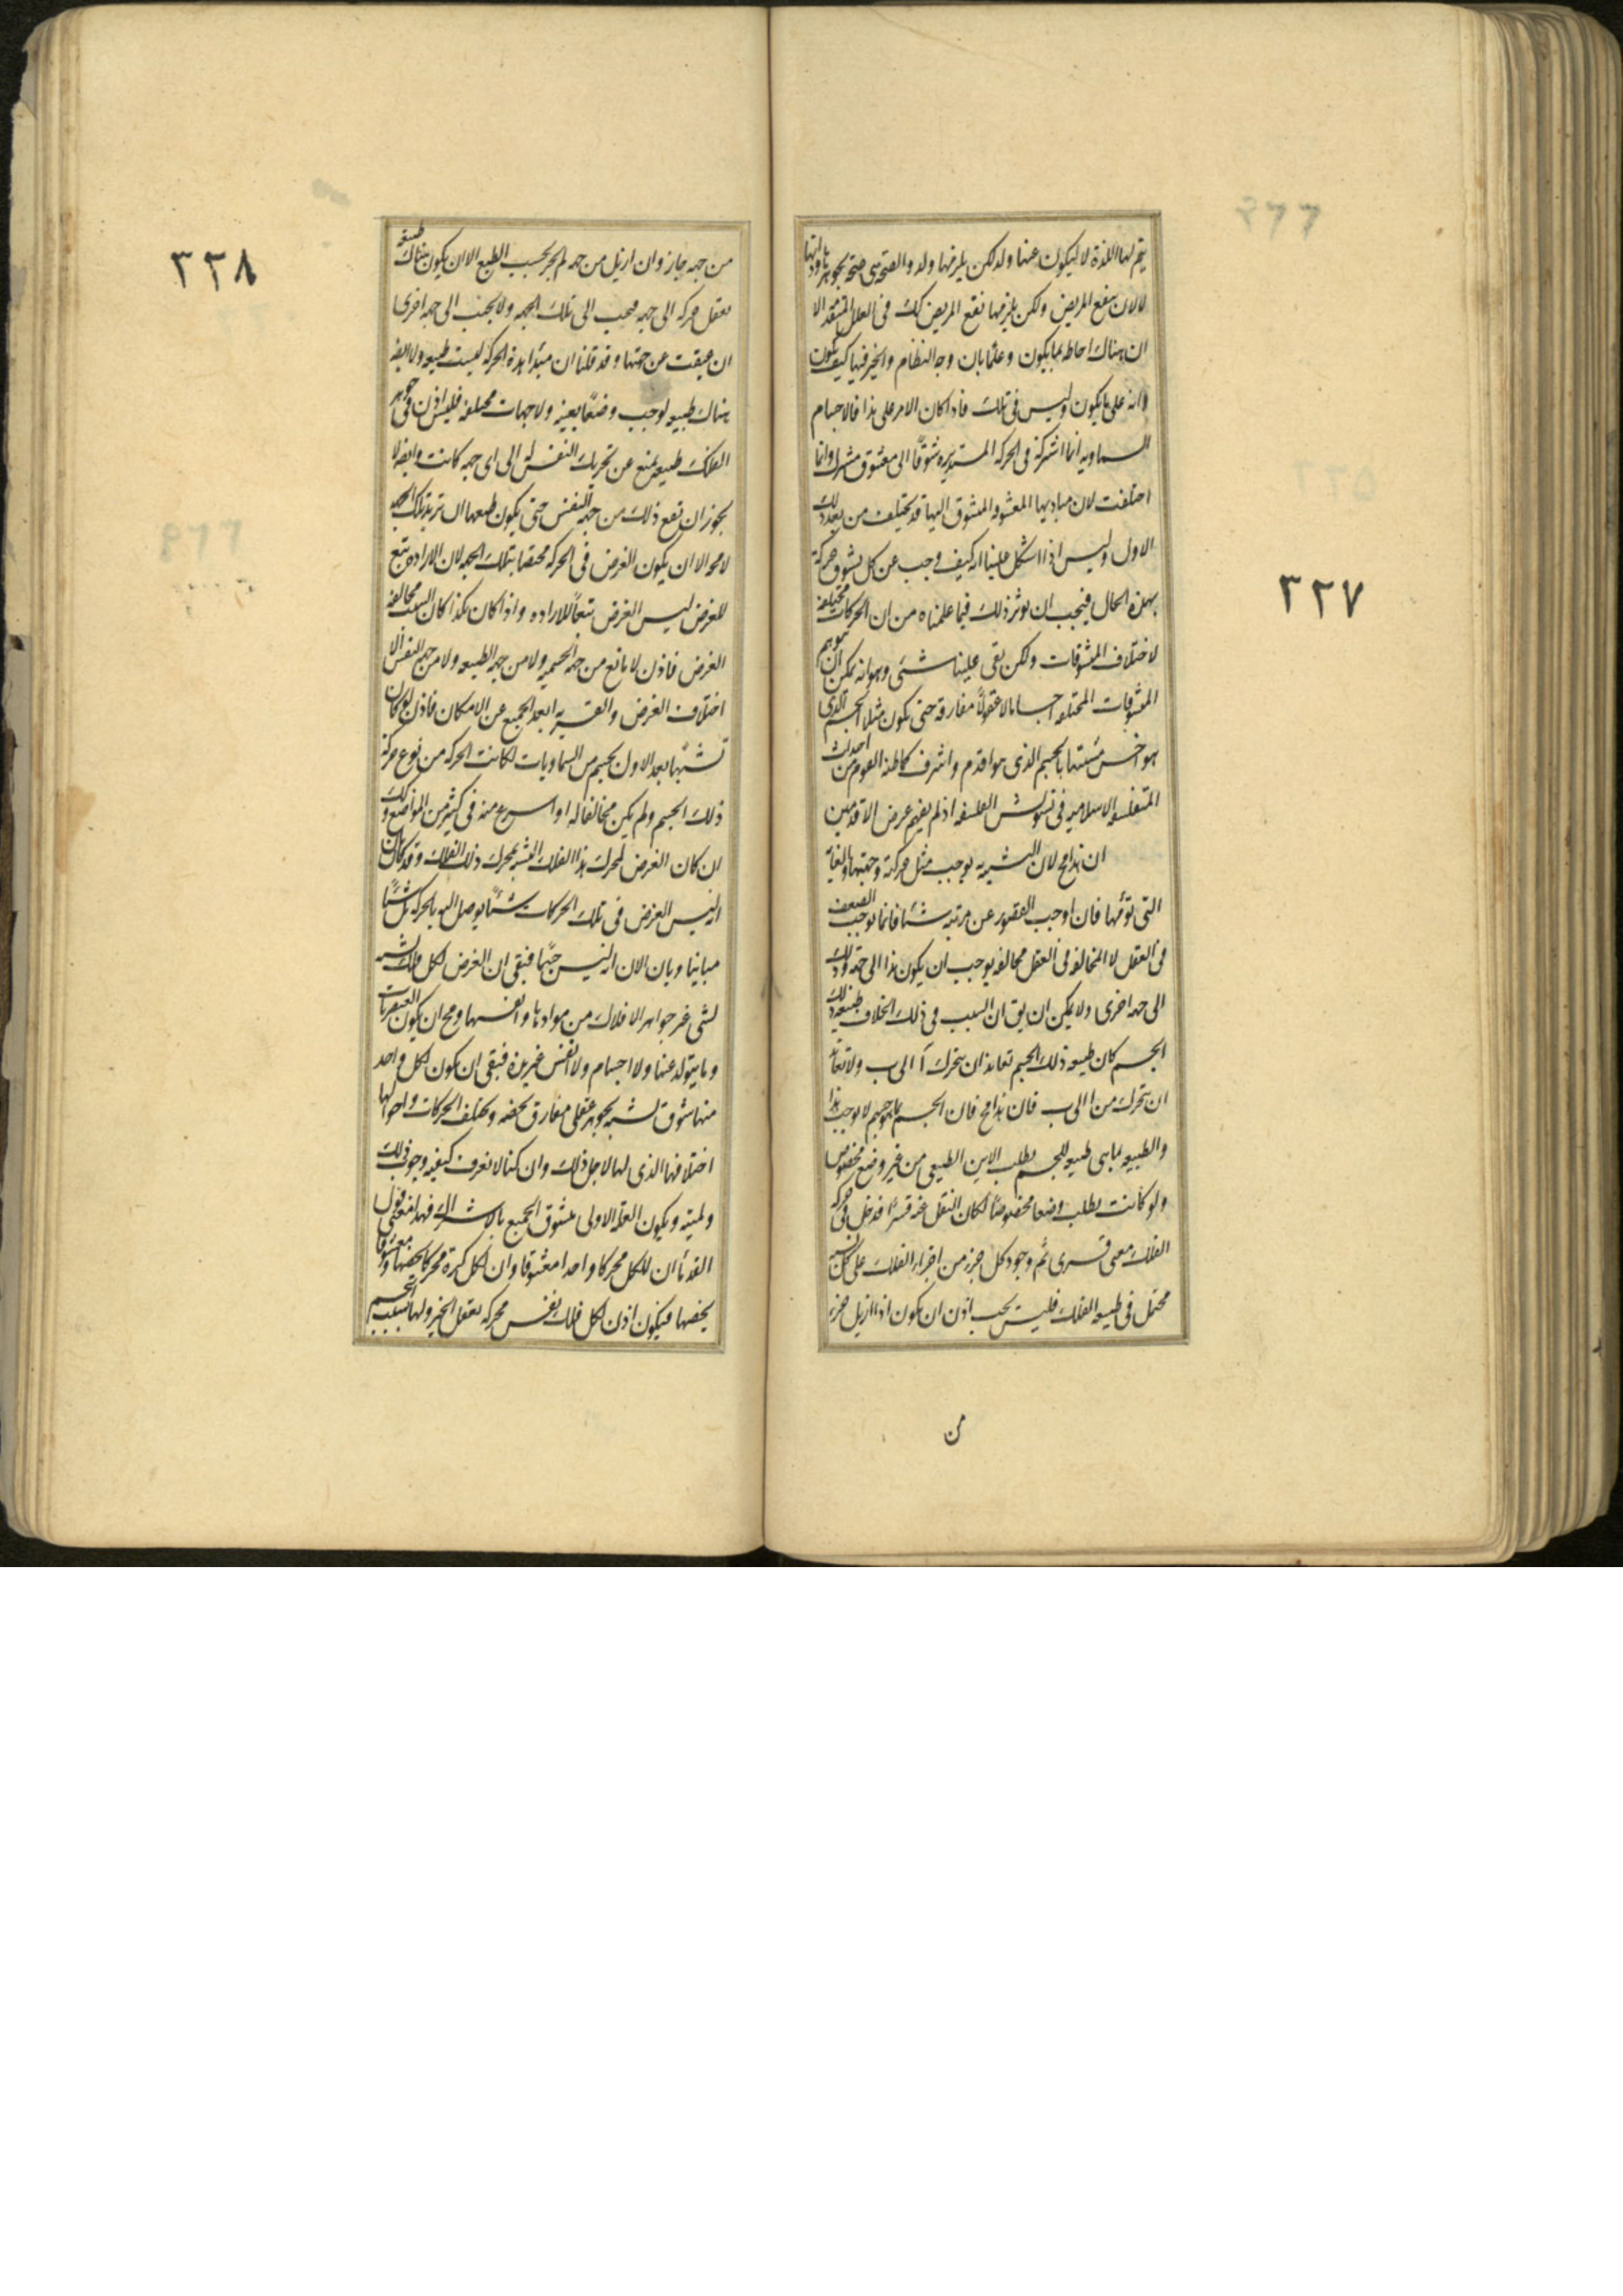 يتم لها اللذة لا ليكون عنها ولد لكن يلزمها ولد والصحة هى صحة بجوهرها وذاتها
لا لان ينفع المريض ولكن يلزمها نفع المريض كك فى العلل المتقدمة الا
ان هناك احاطة بما يكون وعلما بان وجه النظام والخير فيها كيف يكون
وانه على ما يكون وليس فى تلك فاذا كان الامر على هذا فالاجسام
السماوية انما اشتركت فى الحركة المستديرة شوقا الى معشوق مشترك وانما
اختلفت لان مباديها المعشوقة المتشوق اليها قد يختلف من بعد ذلك
الاول وليس اذا اشكل علينا انه كيف وجب عن كل تشوق حركة
بهذه الحال فيجب ان يوثر ذلك فيما علمناه من ان الحركات مختلفة
لاختلاف المتشوقات ولكن بقى علينا شئ وهو انه يمكن ان يتوهم
المتشوقات المختلفة اجساما لا عقولا مفارقة حتى يكون مثلا الجسم الذى
هو اخس متشبها بالجسم الذى هو اقدم واشرف كما ظنه القوم من احداث
المتفلسفة الاسلامية فى تشويش الفلسفة اذ لم يفهم غرض الاقدمين
ان هذا مح لان التشبه به يوجب مثل حركته وجهتها والغاية
التى تؤمها فان اوجب القصور عن مرتبته شيئا فانما يوجب الضعف
فى الفعل لا المخالفة فى الفعل مخالفة يوجب ان يكون هذا الى جهة وذلك
الى جهة اخرى ولا يمكن ان يق ان السبب فى ذلك الخلاف طبيعة ذلك
الجسم كان طبيعة ذلك الجسم تعاند ان يتحرك آ الى ب ولا تعاند
ان يتحرك من ا الى ب فان هذا مح فان الجسم بما هو جسم لا يوجب هذا
والطبيعة بما هى طبيعة للجسم يطلب الاين الطبيعى من غير وضع مخصوص
ولو كانت يطلب وضعا مخصوصا لكان النقل عنه قسرا فدخل فى حركة
الفلك معنى قسرى ثم وجود كل جزء من اجزاء الفلك على كل نسبة
محتمل فى طبيعة الفلك فليس يجب اذن ان يكون اذا ازيل جزء
من
٣٢٧
من جهة جاز وان ازيل من جهة لم يجز بحسب الطبع الا ان يكون هناك طبيعة
يفعل حركة الى جهة فيجب الى تلك الجهة ولا يجب الى جهة اخرى
ان عيقت عن جهتها وقد قلنا ان مبدا هذه الحركة ليست طبيعة ولا ايضا
هناك طبيعة يوجب وضعا بعينه ولا جهات مختلفة فليس اذن فى جوهر
الفلك طبيعة يمنع عن تحريك النفس له الى اى جهة كانت وايضا لا
يجوز ان يقع ذلك من جهة النفس حتى يكون طبعها ان تريد تلك الجهة
لا محة الا ان يكون الغرض فى الحركة مختصا بتلك الجهة لان الارادة تبع
للغرض ليس الغرض تبعا للارادة واذا كان هكذا كان السبب مخالفة
الغرض فاذن لا مانع من جهة الجسمية ولا من جهة الطبيعة ولا من جهة النفس الا
اختلاف الغرض والقسر ابعد الجميع عن الامكان فاذن لو كان
تشبها بعد الاول بجسم من السماويات لكانت الحركة من نوع حركة
ذلك الجسم ولم يكن مخالفا له او اسرع منه فى كثير من المواضع وكك
ان كان الغرض لمحرك هذا الفلك التشبه بمحرك ذلك الفلك وقد كان بان
انه ليس الغرض فى تلك الحركات شيئا يوصل اليه بالحركة بل شيئا
مباينا وبان الان انه ليس جسما فبقى ان الغرض لكل فلك تشبه
بشئ غير جواهر الافلاك من موادها وانفسها ومح ان يكون العنصريات
وما يتولد عنها ولا اجسام ولا انفس غير هذه فبقى ان يكون لكل واحد
منها شوق تشبه بجوهر عقلى مفارق يخصه ويختلف الحركات واحوالها
اختلافها الذى لها لاجل ذلك وان كنا لا نعرف كيفية وجوب ذلك
ولميته ويكون العلة الاولى متشوق الجميع بالاشتراك فهذا معنى قول
القدماء ان للكل محركا واحدا معشوقا وان لكل كرة محركا يخصها ومعشوقا
يخصها فيكون اذن لكل فلك نفس محركة يعقل الخير ولها بسبب الجسم
٣٣٨